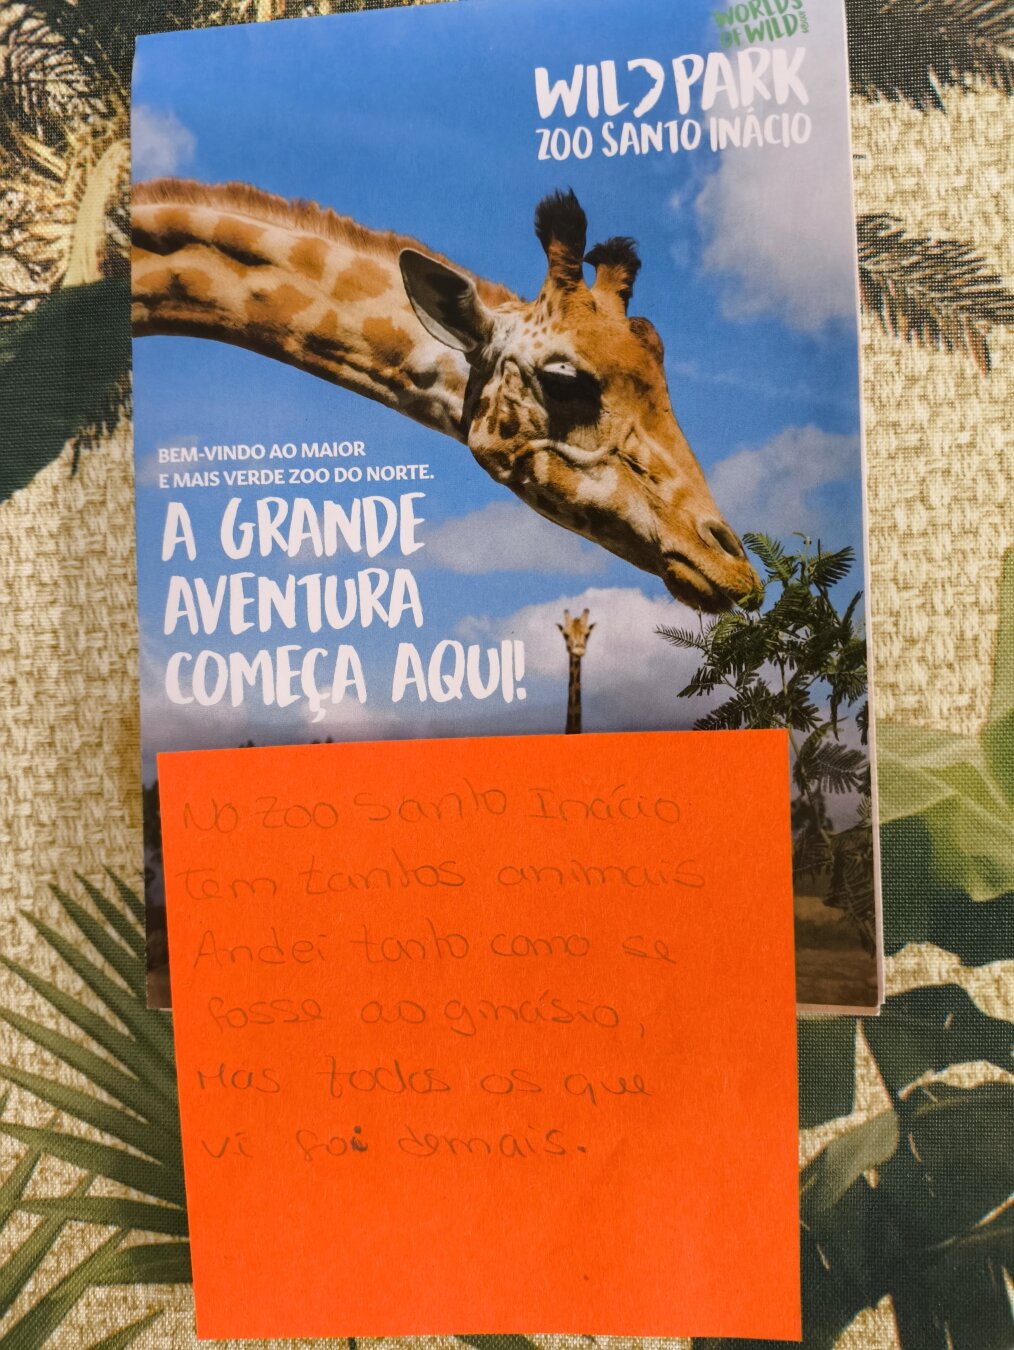 WORLDS
OF WILD
WILD PARK
ZOO SANTO INÁCIO
BEM-VINDO AO MAIOR
E MAIS VERDE ZOO DO NORTE.
A GRANDE
AVENTURA
COMEÇA AQUI!
No Zoo Santo Inácio
tem tantos animais
Andei tanto como se
fosse ao ginásio,
Mas todos os que
vi foi demais.